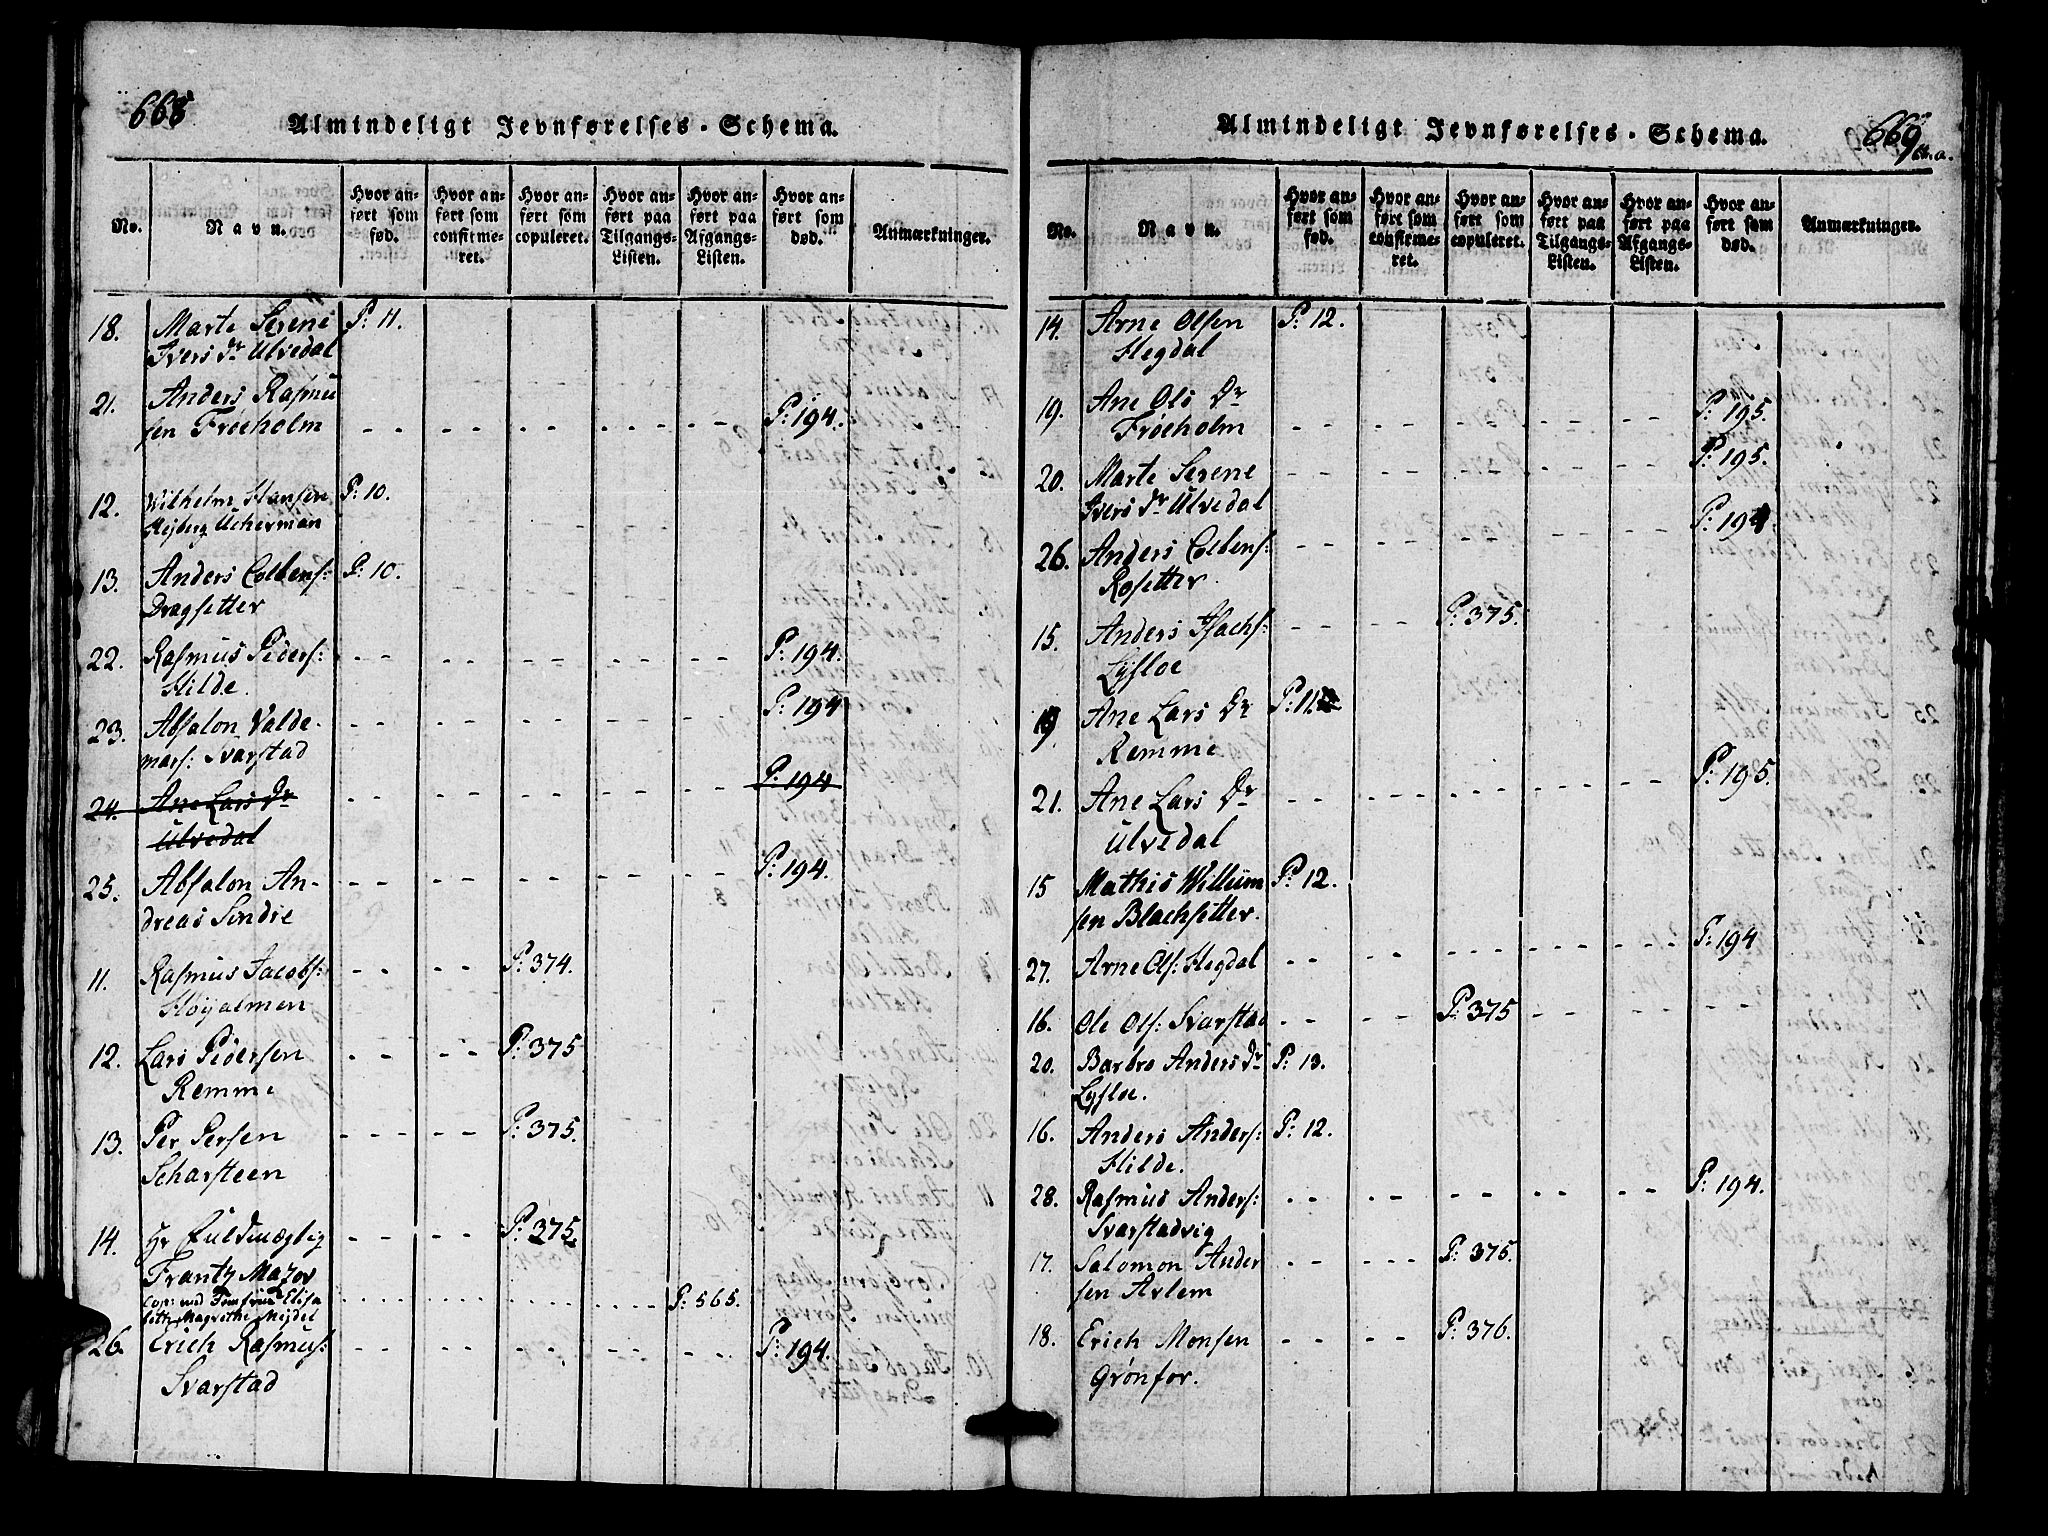 668
Almindeligt Jevnførelses-Schema.
No. Navn. Hvor anført som fød. Hvor anført som confirmeret. Hvor anført som copuleret. Hvor anført paa Tilgangs-Listen. Hvor anført paa Afgangs-Listen. Hvor anført som død. Anmærkninger.
18. Marte Serene P: 11.
Ivers Dr Ulvedal
21. Anders Rasmu
sen Frøeholm P: 194.
12. Wilhelm Hansen P: 10.
Ucherman
13. Anders Colbens: P: 10.
Dragsetter
22. Rasmus Peders: P: 194.
Hilde.
23. Absalon Valde- P: 194
mars: Svarstad
24. Ane Lars Dr P: 194
Ulvedal
25. Absalon An- P: 194.
dreas Sindre
11. Rasmus Jacobs: P: 374.
Høyalmen
12. Lars Pedersen P: 375
Remme
13. Per Persen P: 375.
Scharsteen
14. Hr Fuldmægtig P: 375.
Frantz Mazor
Cop: med Jomfrue Elisa P: 565.
beth Magrethe Mejdel
26. Erich Rasmus: P: 194.
Svarstad
Almindeligt Jevnførelses-Schema.
669
No. Navn. Hvor anført som fød. Hvor anført som confirmeret. Hvor anført som copuleret. Hvor anført paa Tilgangs-Listen. Hvor anført paa Afgangs-Listen. Hvor anført som død. Anmærkninger.
14. Arne Olsen P: 12.
Hegdal
19. Ane Ols Dr P: 195.
Frøeholm
20. Marte Serene P: 195.
Ivers Dr Ulvedal
26. Anders Colbens: P: 194
Rosetter
15. Anders Isachs: P: 375.
Lysloe
19 Ane Lars Dr P: 11.
Remme
21. Ane Lars Dr P: 195.
Ulvedal
15 Mathis Willum P: 12.
sen Blachsetter.
27. Arne Ols: Hegdal P: 194
16. Ole Ols: Svarstad P: 375
20. Barbro Anders Dr P: 13.
Lysloe.
16. Anders Anders: P: 12.
Hilde.
28. Rasmus Anders: P: 194.
Svarstadvig
17. Salomon Ander P: 375.
sen Avlem
18. Erich Monsen P: 376.
Grønfor.